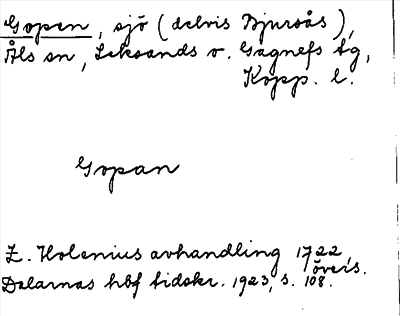 Gopen, sjö (delvis Bjursås),
Åls sn, Leksands o. Gagnefs tg,
Kopp. l.
Gopan
Z. Holenius avhandling 1722,
övers.
Dalarnas hbf tidskr. 1923, s. 108.